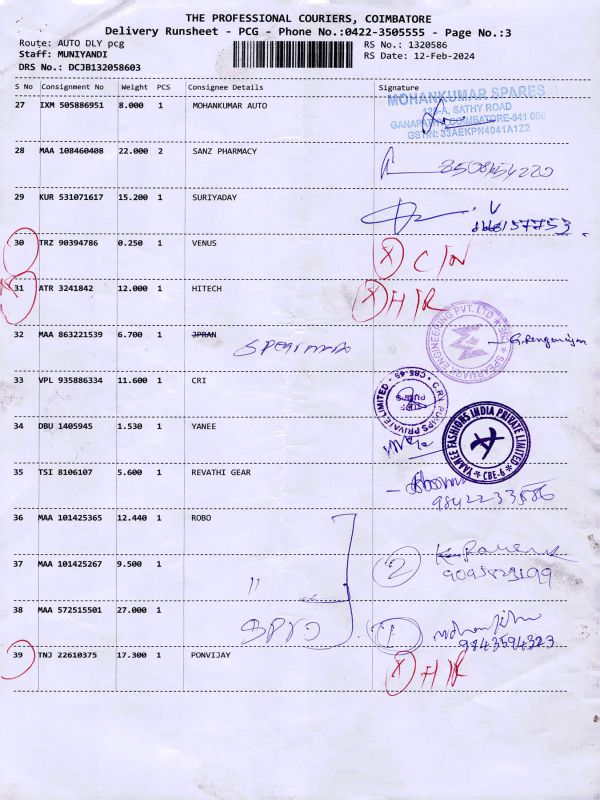 THE PROFESSIONAL COURIERS, COIMBATORE
Delivery Runsheet - PCG - Phone No.:0422-3505555 - Page No.:3
Route: AUTO DLY pcg
RS No.: 1320586
Staff: MUNIYANDI
RS Date: 12-Feb-2024
DRS No.: DCJB132058603
S No Consignment No Weight PCS Consignee Details Signature
27 IXM 505886951 8.000 1 MOHANKUMAR AUTO
MOHANKUMAR SPARES
SATHY ROAD
GANAPATHY, COIMBATORE-641 006
GSTIN: 33AEKPN4041A1Z2
28 MAA 108460408 22.000 2 SANZ PHARMACY
8508454220
29 KUR 531071617 15.200 1 SURIYADAY
30 TRZ 90394786 0.250 1 VENUS
X C/N
31 ATR 3241842 12.000 1 HITECH
X H/R
32 MAA 863221539 6.700 1 JPRAN
SPEARMARK ENGINEERING PVT. LTD
33 VPL 935886334 11.600 1 CRI
C.R.I. PUMPS PRIVATE LIMITED CBE-49
34 DBU 1405945 1.530 1 YANEE
YAANEE FASHIONS INDIA PRIVATE LIMITED
CBE-6
35 TSI 8106107 5.600 1 REVATHI GEAR
9842233586
36 MAA 101425365 12.440 1 ROBO
37 MAA 101425267 9.500 1
"
2
38 MAA 572515501 27.000 1
1
9843594323
39 TNJ 22610375 17.300 1 PONVIJAY
X H/R